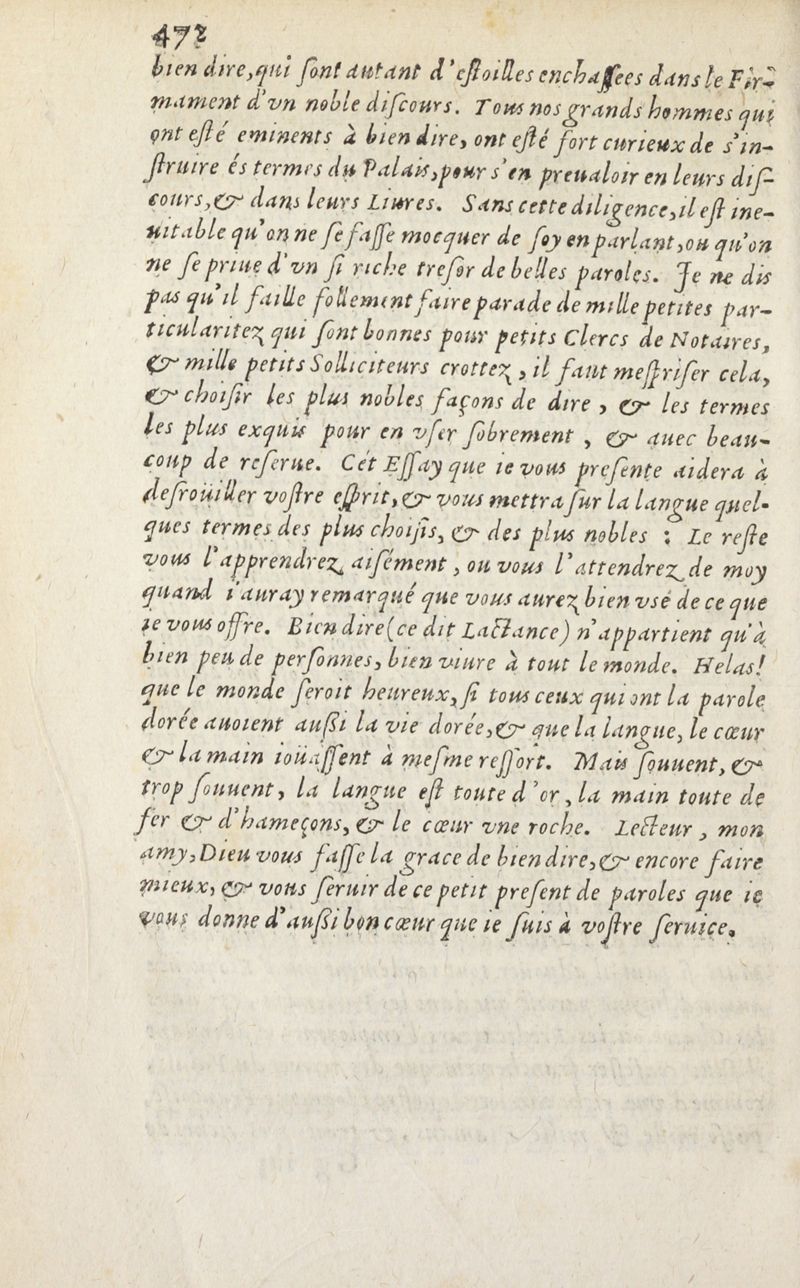 472
bien dire, qui ſont autant d'eſtoilles enchaſſees dans le Fir-
mament d'vn noble diſcours. Tous nos grands hommes qui
ont eſté eminents à bien dire, ont eſté fort curieux de s'in-
ſtruire és termes du Palais, pour s'en preualoir en leurs diſ-
cours, & dans leurs Liures. Sans cette diligence, il eſt ine-
uitable qu'on ne ſe faſſe mocquer de ſoy en parlant, ou qu'on
ne ſe priue d'vn ſi riche treſor de belles paroles. Je ne dis
pas qu'il faille follement faire parade de mille petites par-
ticularitez qui ſont bonnes pour petits Clercs de Notaires,
& mille petits Solliciteurs crottez, il faut meſpriſer cela,
& choiſir les plus nobles façons de dire, & les termes
les plus exquis pour en vſer ſobrement, & auec beau-
coup de reſerue. Cét Eſſay que ie vous preſente aidera à
deſroüiller voſtre eſprit, & vous mettra ſur la langue quel-
ques termes des plus choiſis, & des plus nobles : Le reſte
vous l'apprendrez aiſément, ou vous l'attendrez de moy
quand i'auray remarqué que vous aurez bien vsé de ce que
ie vous offre. Bien dire (ce dit Lactance) n'appartient qu'à
bien peu de perſonnes, bien viure à tout le monde. Helas!
que le monde ſeroit heureux, ſi tous ceux qui ont la parole
dorée auoient auſſi la vie dorée, & que la langue, le cœur
& la main ioüaſſent à meſme reſſort. Mais ſouuent, &
trop ſouuent, la langue eſt toute d'or, la main toute de
fer & d'hameçons, & le cœur vne roche. Lecteur, mon
amy, Dieu vous faſſe la grace de bien dire, & encore faire
mieux, & vous ſeruir de ce petit preſent de paroles que ie
vous donne d'auſſi bon cœur que ie ſuis à voſtre ſeruice.